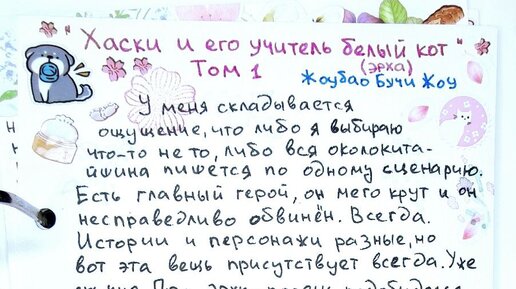 "Хаски и его учитель белый кот"
(эрха)
Том 1
Жоубао Бучи Жоу
У меня складывается
ощущение, что либо я выбираю
что-то не то, либо вся околокита-
йщина пишется по одному сценарию.
Есть главный герой, он мего крут и он
несправедливо обвинён. Всегда.
Истории и персонажи разные, но
вот эта вещь присутствует всегда. Уже